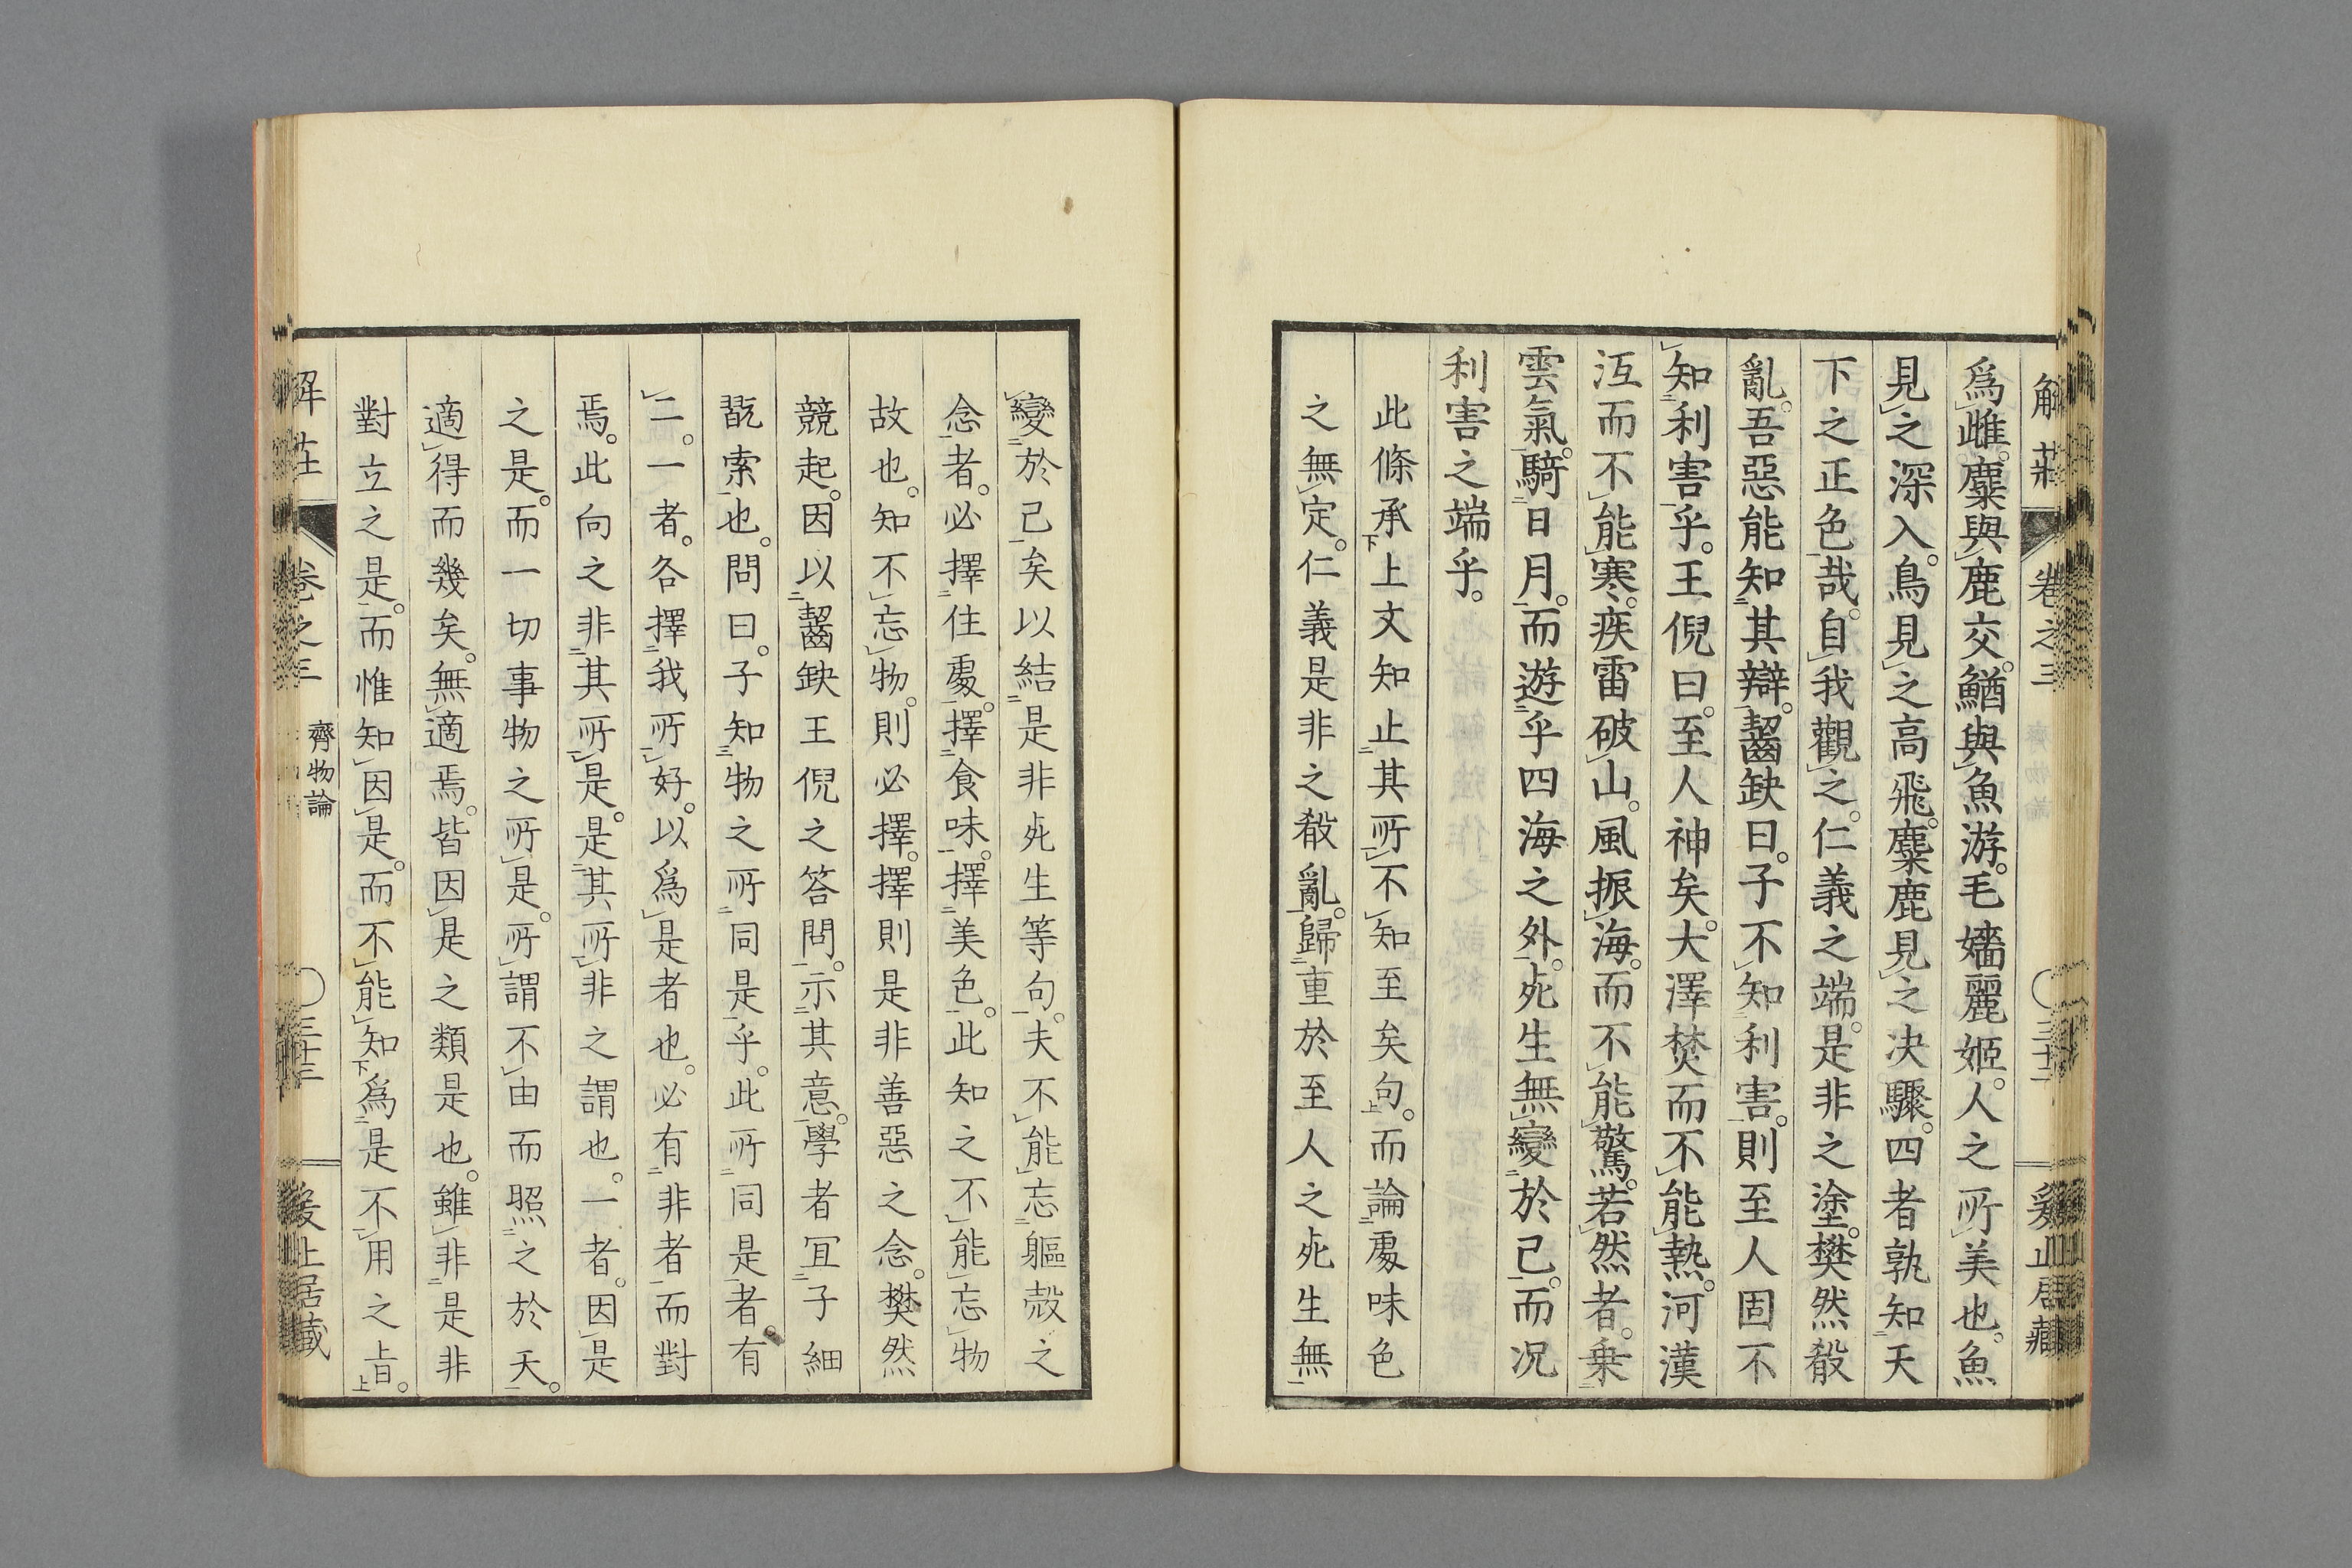 解莊 卷之三 三十二
爲雌。麋與鹿交。鰌與魚游。毛嬙麗姬。人之所美也。魚
見之深入。鳥見之高飛。麋鹿見之决驟。四者孰知天
下之正色哉。自我觀之。仁義之端。是非之塗。樊然殽
亂。吾惡能知其辯。齧缺曰。子不知利害。則至人固不
知利害乎。王倪曰。至人神矣。大澤焚而不能熱。河漢
沍而不能寒。疾雷破山。風振海。而不能驚。若然者。乗
雲氣。騎日月。而遊乎四海之外。死生無變於己。而况
利害之端乎。
此條承上文知止其所不知至矣句。而論處味色
之無定。仁義是非之殽亂。歸重於至人之死生無
變於己矣以結是非死生等句。夫不能忘軀殼之
念者。必擇住處。擇食味。擇美色。此知之不能忘物
故也。知不忘物。則必擇。擇則是非善惡之念。樊然
競起。因以齧缺王倪之答問。示其意。學者宜子細
翫索也。問曰。子知物之所同是乎。此所同是者。有
二。一者。各擇我所好。以爲是者也。必有非者而對
焉。此向之非其所是。是其所非之謂也。一者。因是
之是。而一切事物之所是。所謂不由而照之於天。
適得而幾矣。無適焉。皆因是之類是也。雖非是非
對立之是。而惟知因是。而不能知爲是不用之旨。
卷之三 齊物論 三十三